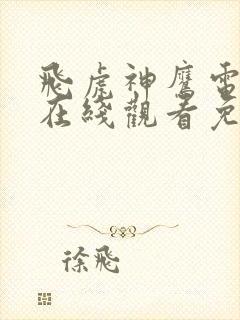 飛虎神鷹電
在綫觀看免
徐飛